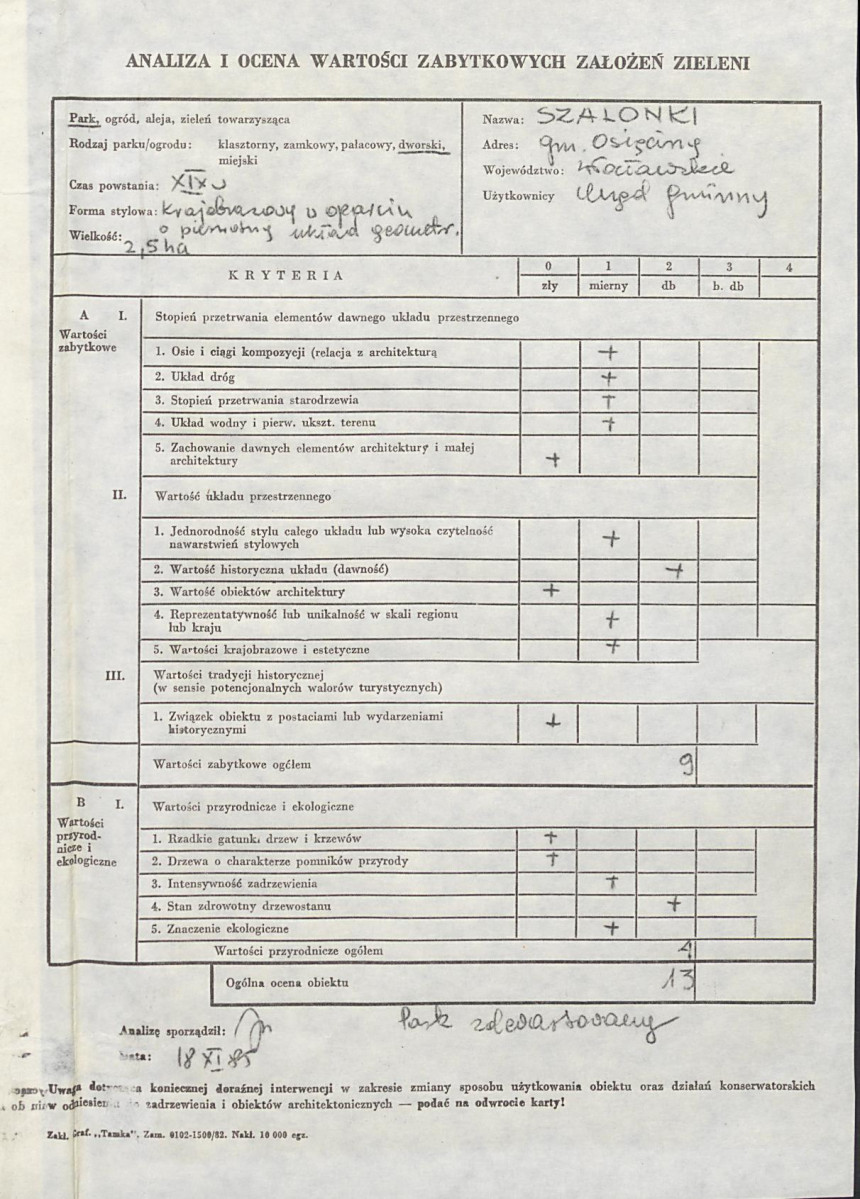 ANALIZA I OCENA WARTOŚCI ZABYTKOWYCH ZAŁOŻEŃ ZIELENI
Park, ogród, aleja, zieleń towarzysząca
Rodzaj parku/ogrodu: klasztorny, zamkowy, pałacowy, dworski,
miejski
Czas powstania: XIX w
Forma stylowa: krajobrazowy w oparciu
o pierwotny układ geometr.
Wielkość: 2,5 ha
Nazwa: SZALONKI
Adres: gm. Osięciny
Województwo: włocławskie
Użytkownicy Urząd gminny
KRYTERIA
0 1 2 3 4
zły mierny db b. db
A I. Stopień przetrwania elementów dawnego układu przestrzennego
Wartości
zabytkowe
1. Osie i ciągi kompozycji (relacja z architekturą +
2. Układ dróg +
3. Stopień przetrwania starodrzewia +
4. Układ wodny i pierw. ukszt. terenu +
5. Zachowanie dawnych elementów architektury i małej
architektury +
II. Wartość układu przestrzennego
1. Jednorodność stylu całego układu lub wysoka czytelność
nawarstwień stylowych +
2. Wartość historyczna układu (dawność) +
3. Wartość obiektów architektury +
4. Reprezentatywność lub unikalność w skali regionu
lub kraju +
5. Wartości krajobrazowe i estetyczne +
III. Wartości tradycji historycznej
(w sensie potencjonalnych walorów turystycznych)
1. Związek obiektu z postaciami lub wydarzeniami
historycznymi +
Wartości zabytkowe ogółem 9
B I. Wartości przyrodnicze i ekologiczne
Wartości
przyrod-
nicze i
ekologiczne
1. Rzadkie gatunki drzew i krzewów +
2. Drzewa o charakterze pomników przyrody +
3. Intensywność zadrzewienia +
4. Stan zdrowotny drzewostanu +
5. Znaczenie ekologiczne +
Wartości przyrodnicze ogółem 4
Ogólna ocena obiektu 13
Analizę sporządził:
Park zdewastowany
Data: 18 XI 85
Uwaga koniecznej doraźnej interwencji w zakresie zmiany sposobu użytkowania obiektu oraz działań konserwatorskich
zadrzewienia i obiektów architektonicznych — podać na odwrocie karty!
Zakł. Graf. „Tamka". Zam. 0102-1500/82. Nakł. 10 000 egz.